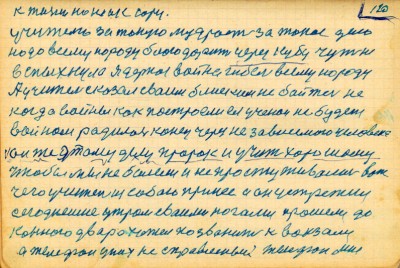 120
учитель за такую мудрость за такое дело
надо всему народу благодарить через кубу чуть не
вспыхнула ядерная война гибел всему народу
А учитель сказал своим близким не бойтесь не
когда войны как построил ей учение не будет
войною
конец через независимого человека
он же этому делу пророк и учит хорошему
чтобы мы не болели и не простуживались вот
чего учитель с собою принес и он утрешним
сегодняшне утром своими ногами прошел до
конного двора хотел позвонить к вокзалу
а телефон у них не справленый телефон